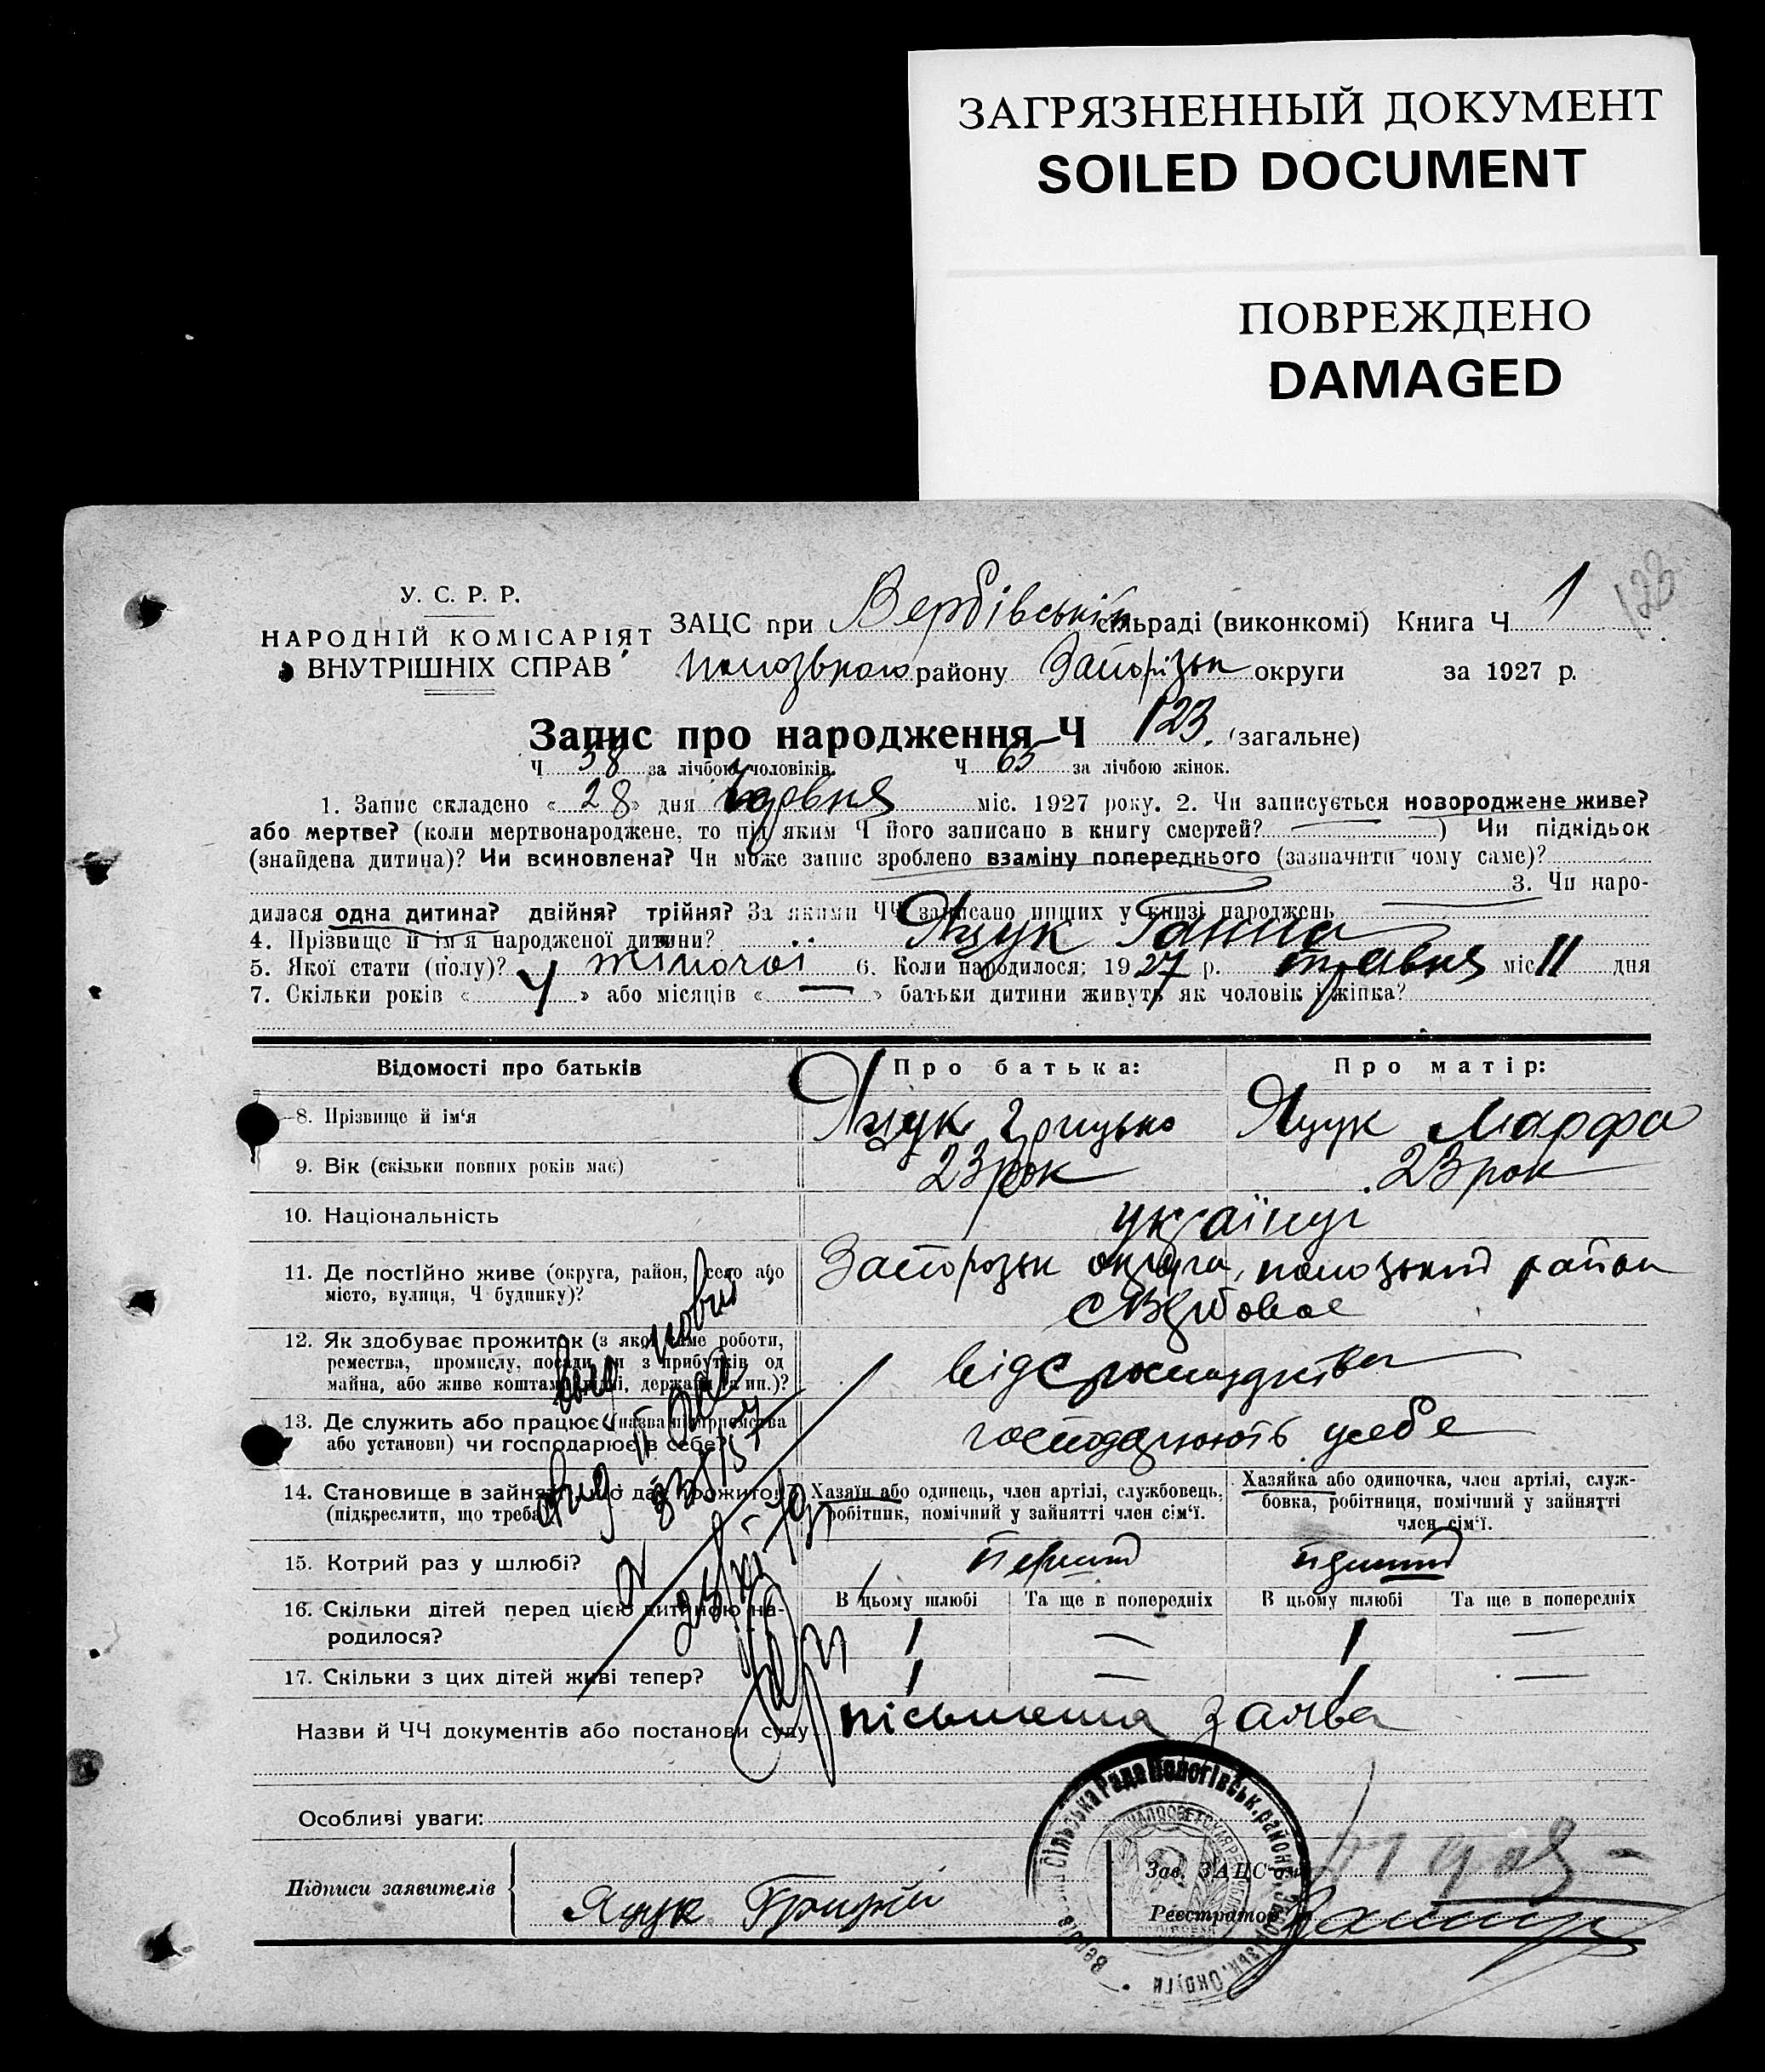 ЗАГРЯЗНЕННЫЙ ДОКУМЕНТ
SOILED DOCUMENT
ПОВРЕЖДЕНО
DAMAGED
123
У. С. Р. Р.
НАРОДНІЙ КОМІСАРІЯТ
ВНУТРІШНІХ СПРАВ
ЗАЦС при Вербівській сільраді (виконкомі) Книга Ч 1
району Запорізьк округи за 1927 р.
Запис про народження Ч 123. (загальне)
Ч 58 за лічбою чоловіків. Ч 65 за лічбою жінок.
1. Запис складено «28» дня Червня міс. 1927 року. 2. Чи записується новороджене живе?
або мертве? (коли мертвонароджене, то під яким Ч його записано в книгу смертей? —) Чи підкідьок
(знайдена дитина)? Чи всиновлена? Чи може запис зроблено взаміну попереднього (зазначити чому саме)?
3. Чи наро-
дилася одна дитина? двійня? трійня? За якими ЧЧ записано инших у книзі народжень
4. Прізвище й ім'я народженої дитини? Яцук Ганна
5. Якої стати (полу)? жіночої 6. Коли народилося: 1927 р. травня міс 11 дня
7. Скільки років «4» або місяців «—» батьки дитини живуть як чоловік і жінка?
Відомості про батьків Про батька: Про матір:
8. Прізвище й ім'я Яцук Грицько Яцук Марфа
9. Вік (скільки повних років має) 23 рок 23 рок
10. Національність українці
11. Де постійно живе (округа, район, село або
місто, вулиця, Ч будинку)?
Запорозьк округа, район
с Вербовое
12. Як здобуває прожиток (з якої саме роботи,
ремества, промислу, посади чи з прибутків од
майна, або живе коштами рідні, держави та ин.)?
13. Де служить або працює (назва підприємства
або установи) чи господарює в себе?
господарюють усебе
14. Становище в зайнятті, що дає прожиток
(підкреслити, що треба)
Хазяїн або одинець, член артілі, службовець,
робітник, помічний у зайнятті член сім'ї.
Хазяйка або одиночка, член артілі, служ-
бовка, робітниця, помічний у зайнятті
член сім'ї.
15. Котрий раз у шлюбі? перший перший
16. Скільки дітей перед цією дитиною на-
родилося?
В цьому шлюбі Та ще в попередніх В цьому шлюбі Та ще в попередніх
1 — 1 —
17. Скільки з цих дітей живі тепер? 1 — 1 —
Назви й ЧЧ документів або постанови суду письменна заява
Особливі уваги:
Підписи заявителів Яцук Грицко
Зав. ЗАЦС'ом
Реєстратор
Вербівська Сільська Рада Пологівськ. району, Запорізьк. Округи